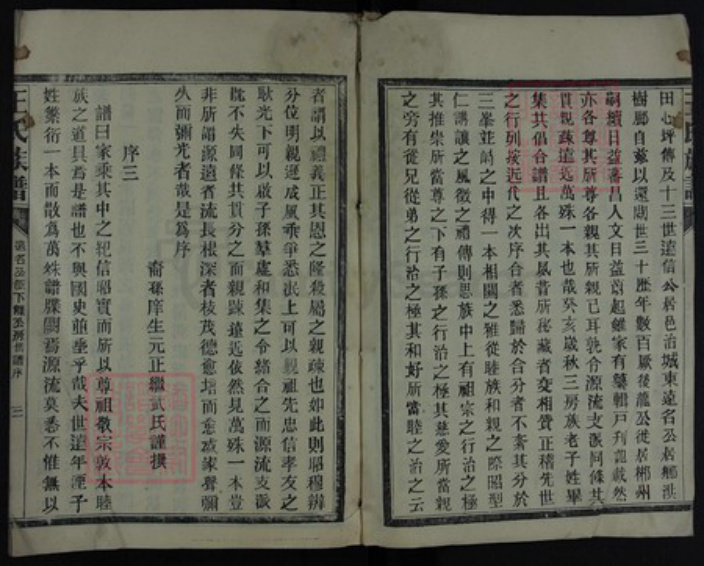 田心坪傳及十三世遠信公居邑治城東遠名公居鄉洪
樹鄙自茲以還閱世三十歷年數百厥後龍公徙居郴州
嗣續日益蕃昌人文日益蔚起雖家有纂輯戶刊記載然
亦各尊其所尊各親其所親已耳孰合源流支派同條共
貫親疎遠近萬殊一本也哉癸亥歲秋三房族老子姓畢
集共倡合譜且各出其夙昔所秘藏者交相質正稽先世
之行列按近代之次序合者悉歸於合分者不紊其分於
三峯並峙之中得一本相關之雅從睦族和親之際昭型
仁講讓之風徵之禮傳則思族中上有祖宗之行治之極
其推崇所當尊之下有子孫之行治之極其慈愛所當親
之旁有從兄從弟之行治之極其和好所當睦之治之云
者謂以禮義正其恩之隆殺屬之親疎也如此則昭穆辨
分位明親遜成風乖爭悉泯上可以親祖先忠信孝友之
耿光下可以啟子孫羣處和集之令緒合之而源流支派
既不失同條共貫分之而親疎遠近依然見萬殊一本豈
非所謂源遠者流長根深者枝茂德愈培而愈盛家聲彌
久而彌光者哉是爲序
裔孫庠生元正繼武氏謹撰
序三
譜曰家乘其中之祀信昭實而所以尊祖敬宗敦本睦
族之道具焉是譜也不與國史並垂乎哉夫世遠年湮子
姓繁衍一本而散爲萬姝譜牒闕焉源流莫悉不惟無以
王氏族譜
序 三